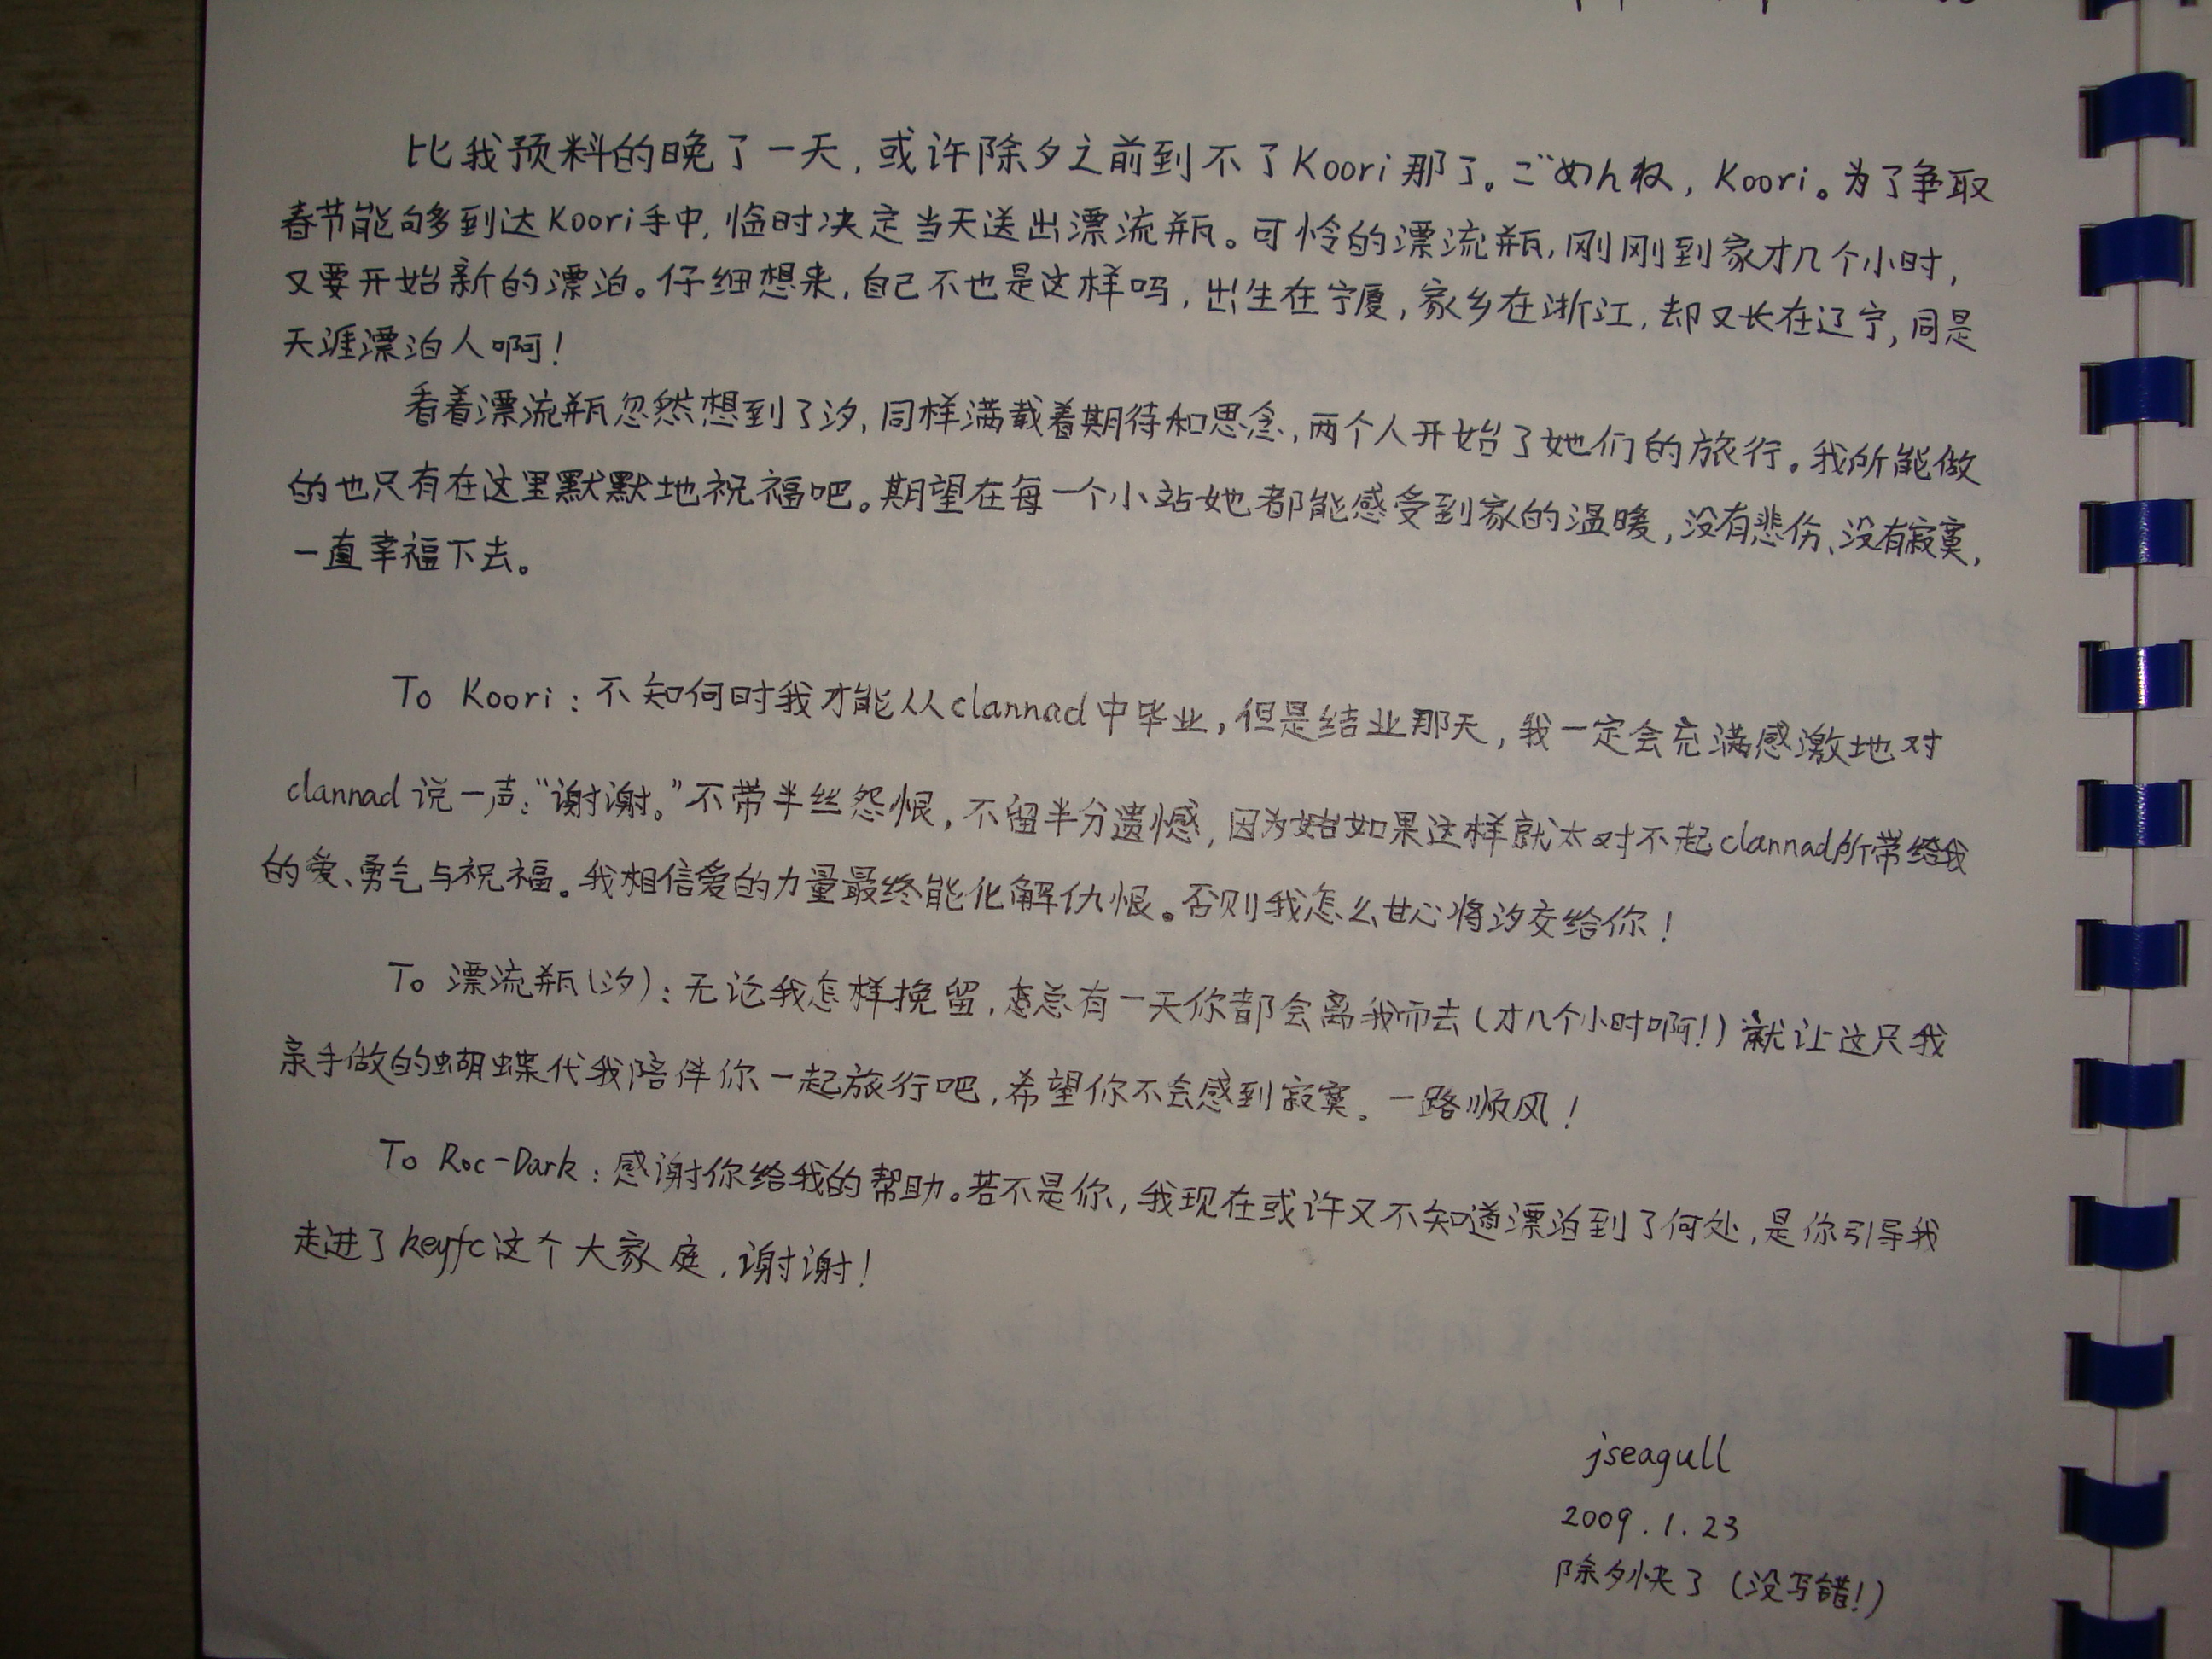 比我预料的晚了一天，或许除夕之前到不了Koori那了。ごめんね，Koori。为了争取
春节能够到达Koori手中，临时决定当天送出漂流瓶。可怜的漂流瓶，刚刚到家才几个小时，
又要开始新的漂泊。仔细想来，自己不也是这样吗，出生在宁夏，家乡在浙江，却又长在辽宁，同是
天涯漂泊人啊！
看着漂流瓶忽然想到了汐，同样满载着期待和思念，两个人开始了她们的旅行。我所能做
的也只有在这里默默地祝福吧。期望在每一个小站她都能感受到家的温暖，没有悲伤、没有寂寞，
一直幸福下去。
To Koori：不知何时我才能从clannad中毕业，但是结业那天，我一定会充满感激地对
clannad说一声：“谢谢。”不带半丝怨恨，不留半分遗憾，因为如果这样就太对不起clannad所带给我
的爱、勇气与祝福。我相信爱的力量最终能化解仇恨。否则我怎么甘心将汐交给你！
To 漂流瓶(汐)：无论我怎样挽留，总有一天你都会离我而去(才几个小时啊！)就让这只我
亲手做的蝴蝶代我陪伴你一起旅行吧，希望你不会感到寂寞。一路顺风！
To Roc-Dark：感谢你给我的帮助。若不是你，我现在或许又不知道漂泊到了何处，是你引导我
走进了keyfc这个大家庭，谢谢！
jseagull
2009.1.23
除夕快了（没写错！）